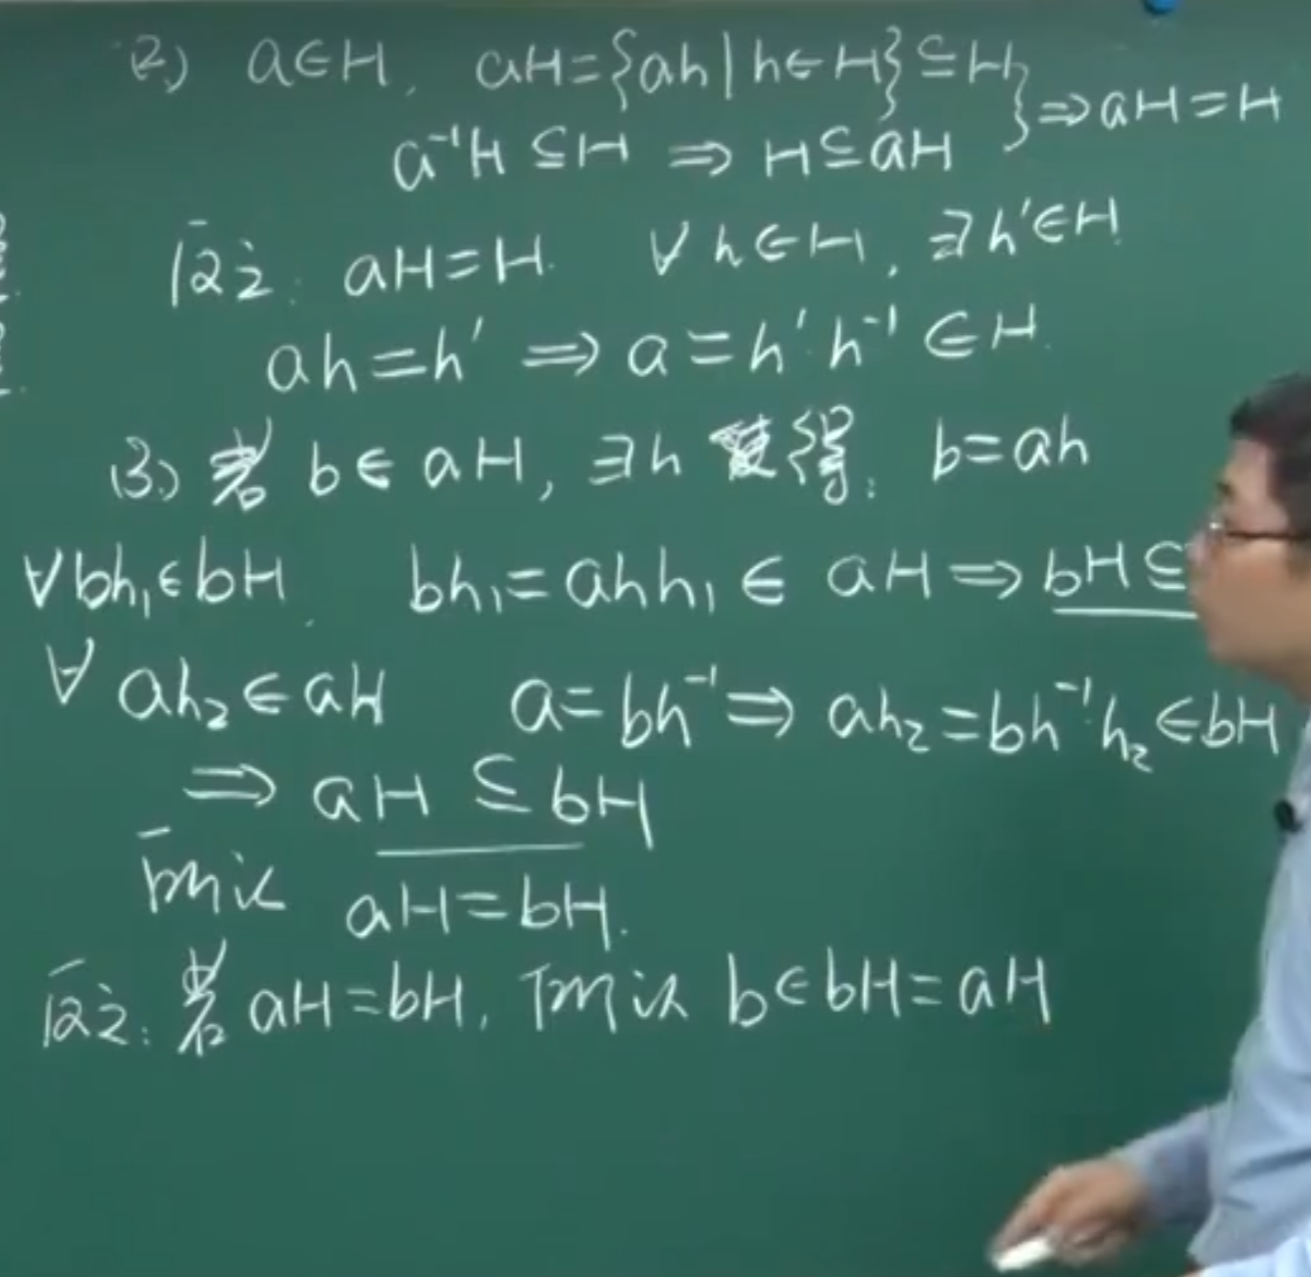 (2) a∈H, aH={ah|h∈H}⊆H } ⇒aH=H
a⁻¹H⊆H ⇒ H⊆aH
反之: aH=H. ∀h∈H, ∃h'∈H
ah=h' ⇒ a=h'·h⁻¹∈H.
(3) 若 b∈aH, ∃h 使得: b=ah
∀bh₁∈bH. bh₁=ahh₁∈aH ⇒ bH⊆
∀ah₂∈aH a=bh⁻¹⇒ah₂=bh⁻¹h₂∈bH
⇒ aH⊆bH
所以 aH=bH.
反之: 若 aH=bH, 所以 b∈bH=aH